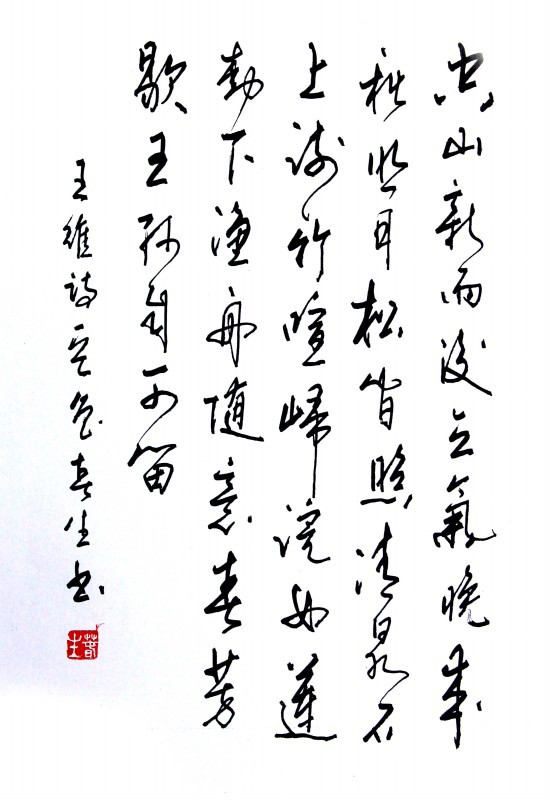 空山新雨後天氣晚來
秋明月松間照清泉石
上流竹喧歸浣女蓮
動下漁舟随意春芳
歇王孫自可留
王維詩 春生书
春生